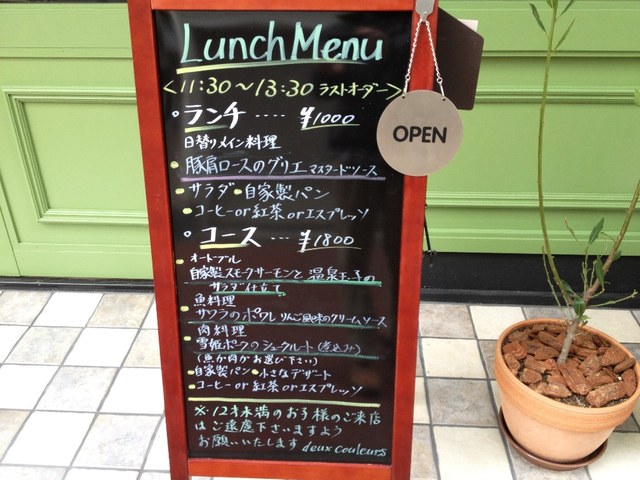 Lunch Menu
<11:30〜13:30 ラストオーダー>
OPEN
○ランチ.... ¥1000
日替りメイン料理
豚肩ロースのグリエ マスタードソース
サラダ・自家製パン
コーヒーor紅茶orエスプレッソ
○コース.... ¥1800
オードブル
自家製スモークサーモンと温泉玉子の
サラダ仕立て
魚料理
サワラのポワレ りんご風味のクリームソース
肉料理
雪姫ポークのシュークルート (煮込み)
(魚か肉かお選び下さい)
自家製パン・小さなデザート
コーヒーor紅茶orエスプレッソ
※12才未満のお子様のご来店
はご遠慮下さいますよう
お願いいたします deux couleurs